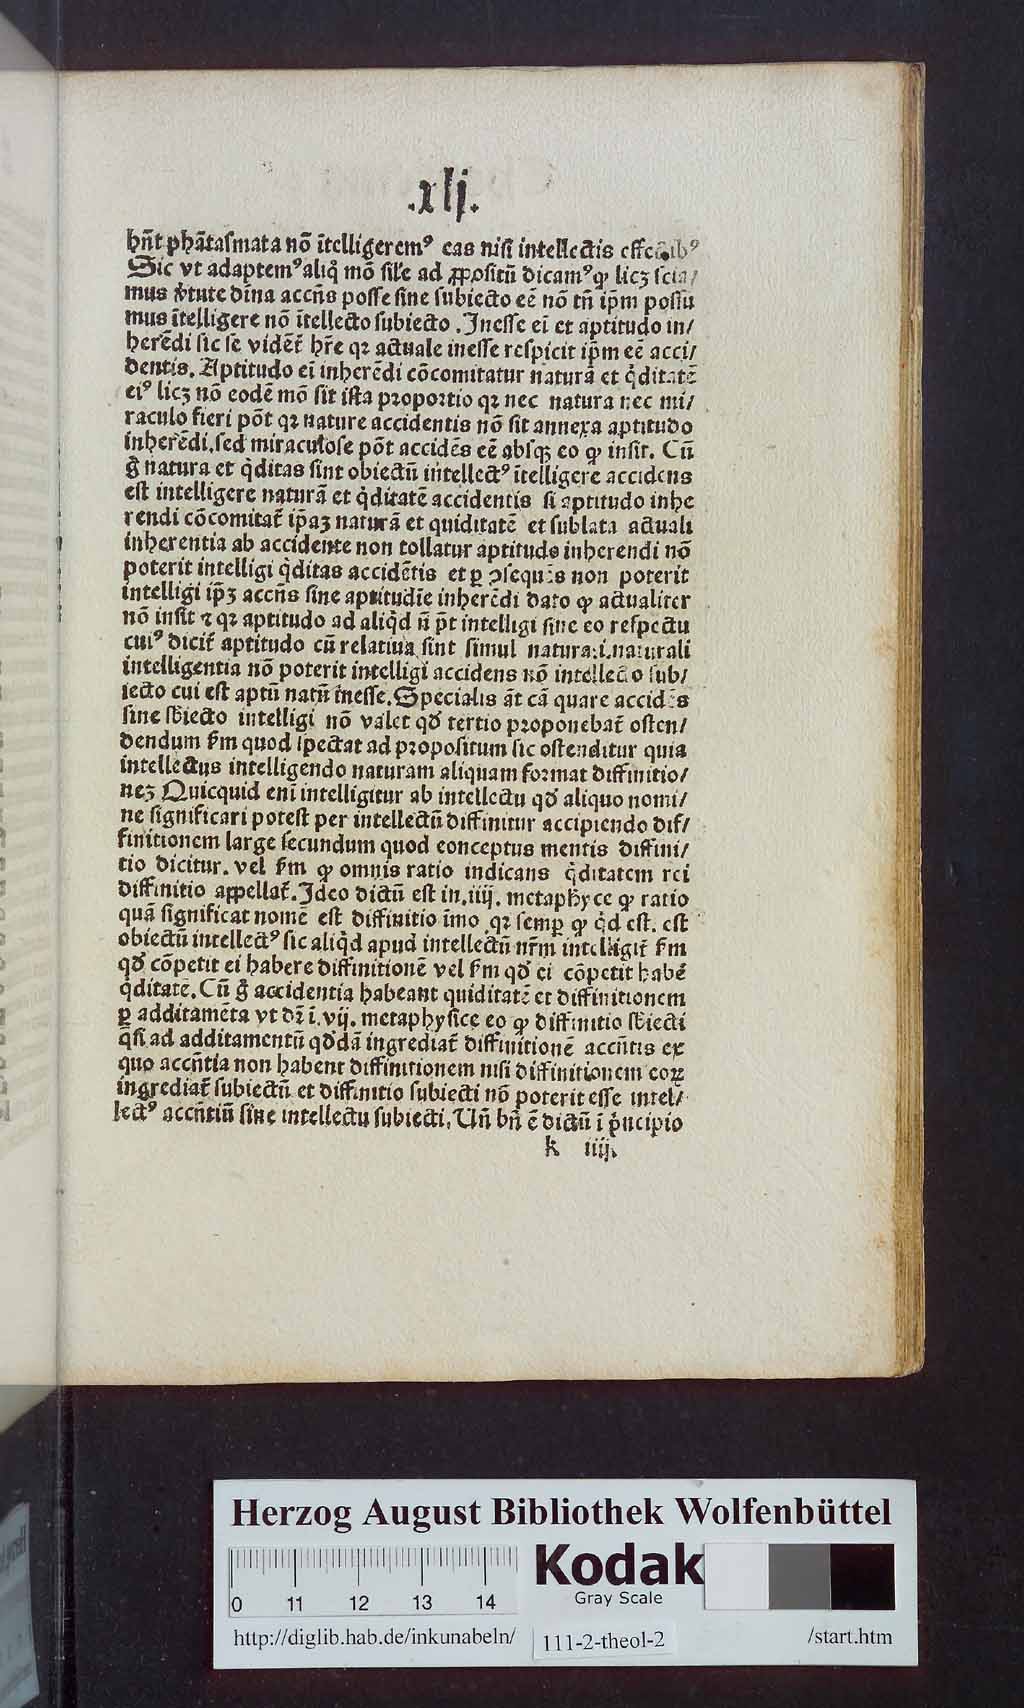 .xlj.
hñt phãtasmata nõ ĩtelligeremꝰ eas nisi intellectis effectibꝰ
Sic vt adaptemꝰ aliq̊ mõ sile ad ꝓpositũ dicamꝰ ꝙ licꝫ scia/
mus v̾tute diĩna accñs posse sine subiecto eẽ nõ tñ ip̃m possu
mus ĩtelligere nõ ĩtellecto subiecto .Inesse eĩ et aptitudo in/
herẽdi sic se vidẽt᷑ hr̃e qꝛ actuale inesse respicit ip̃m eẽ acci/
dentis. Aptitudo eĩ inherẽdi cõcomitatur naturã et q̇ditatẽ
eiꝰ licꝫ nõ eodẽ mõ sit ista proportio qꝛ nec natura nec mi/
raculo fieri põt qꝛ nature accidentis nõ sit annexa aptitudo
inherẽdi.sed miraculose põt accidẽs eẽ absqꝫ eo ꝙ insit. Cũ
g̊ natura et q̇ditas sint obiectũ intellectꝰ ĩtelligere accidens
est intelligere naturã et q̇ditatẽ accidentis si aptitudo inhe
rendi cõcomitat᷑ ip̃aꝫ naturã et quiditatẽ et sublata actuali
inherentia ab accidente non tollatur aptitudo inherendi nõ
poterit intelligi q̇ditas accidẽtis et ꝑ ꝯsequẽs non poterit
intelligi ip̃ꝫ accñs sine aptitudĩe inherẽdi dato ꝙ actualiter
nõ insit ⁊ qꝛ aptitudo ad aliq̇d ñ põt intelligi sine eo respectu
cuiꝰ dicit᷑ aptitudo cũ relatiua sint simul natura.i.naturali
intelligentia nõ poterit intelligi accidens nõ intellecto sub/
iecto cui est aptũ natũ ĩnesse.Specialis ãt cã quare accidẽs
sine sb̾iecto intelligi nõ valet qđ tertio proponebat᷑ osten/
dendum fm quod spectat ad propositum sic ostenditur quia
intellectus intelligendo naturam aliquam format diffinitio/
neꝫ Quicquid enĩ intelligitur ab intellectu qđ aliquo nomi/
ne significari potest per intellectũ diffinitur accipiendo dif/
finitionem large secundum quod conceptus mentis diffini/
tio dicitur. vel fm ꝙ omnis ratio indicans q̇ditatem rei
diffinitio appellat᷑.Ideo dictũ est in.iiij. metaphyce ꝙ ratio
quã significat nomẽ est diffinitio ĩmo qꝛ semꝑ ꝙ q̇d est. est
obiectũ intellectꝰ sic aliq̇d apud intellectũ nr̃m intelligit᷑ fm
qđ cõpetit ei habere diffinitionẽ vel fm qđ ei cõpetit habẽ
q̇ditatẽ.Cũ g̊ accidentia habeant quiditatẽ et diffinitionem
ꝑ additamẽta vt dꝛ̃ ĩ.vij. metaphysice eo ꝙ diffinitio sb̾iecti
q̃si ad additamentũ qđdã ingrediat᷑ diffinitionẽ accñtis ex
quo accñtia non habent diffinitionem nisi diffinitionem eoꝝ
ingrediat᷑ subiectũ et diffinitio subiecti nõ poterit esse intel/
lectꝰ accñtiũ sine intellectu subiecti, Uñ bñ ẽ dictũ ĩ p̊ncipio
k iiij.
Herzog August Bibliothek Wolfenbüttel
0 11 12 13 14
Kodak
Gray Scale
http://diglib.hab.de/inkunabeln/ 111-2-theol-2 /start.htm